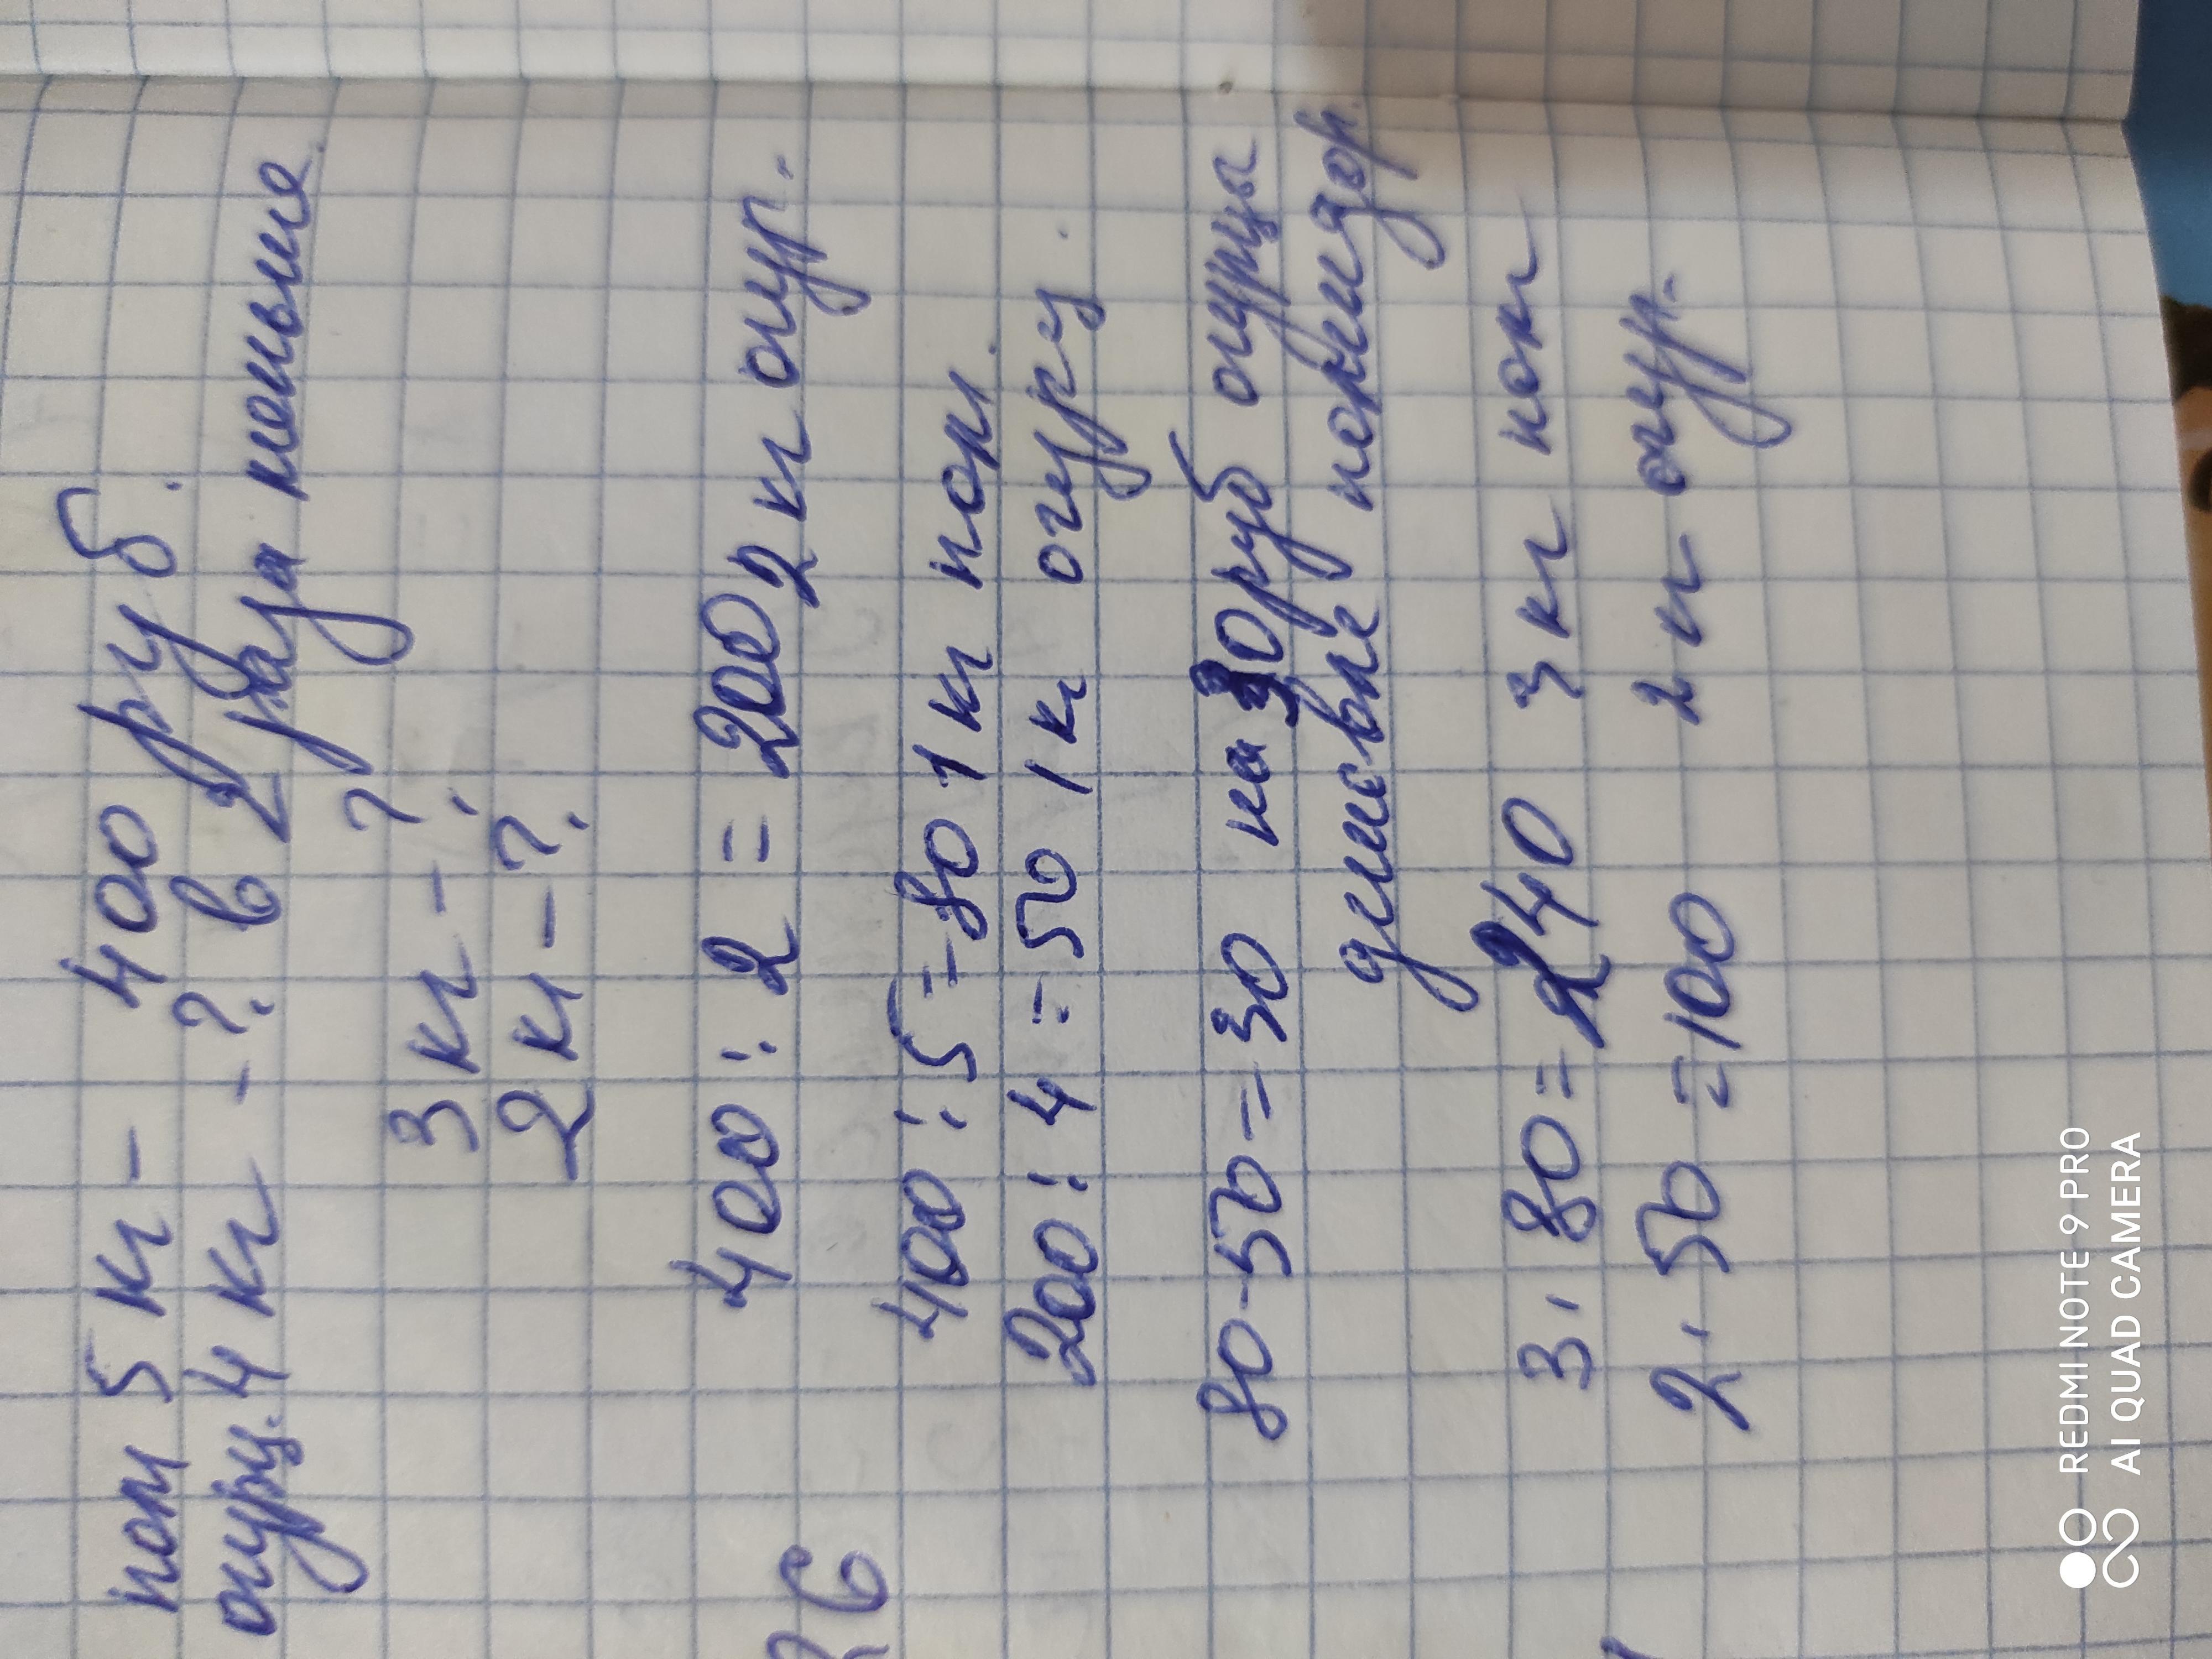 пом 5 кг - 400 руб.
огурц. 4 кг - ? в 2 раза меньше.
3 кг - ?
2 кг - ?
400 : 2 = 200 2 кг огур.
400 : 5 = 80 1 кг пом.
200 : 4 = 50 1 кг огурц.
80 - 50 = 30 на 30 руб огурцы
дешевле помидор.
3 · 80 = 240 3 кг пом
2 · 50 = 100 2 кг огур.
26
REDMI NOTE 9 PRO
AI QUAD CAMERA